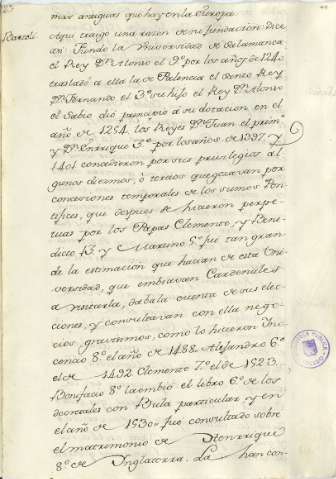 mas antiguas que hay en la Europa.
Aqui traigo una razon de su fundacion dice
asi. Fundo la Universidad de Salamanca
el Rey Dn. Alonso el 9º por los años de 1240
trasladó a ella la de Palencia el Santo Rey
Dn. Fernando el 3º su hijo el Rey Dn. Alonso
el Sabio dio principio a su dotacion en el
año de 1254. los Reyes Dn. Juan el prim.o
y Dn. Enrrique 3º por los años de 1397. y
1401 concedieron por sus privilegios al
gunos diezmos, ò tercios que gozavan por
concesiones temporales de los sumos Pon
tifices, que despues se hicieron perpe
tuas por los Papas Clemente, y Bene
dicto 13. y Martino 5º fue tan gran
de la estimacion que hacian de esta Uni
versidad, que embiavan Cardenales
a visitarla, dabala cuenta de sus elec
ciones, y consultavan con ella nego
cios gravisimos, como lo hicieron Ino
cencio 8º el año de 1488. Alejandro 6º
el de 1492 Clemente 7º el de 1523.
Bonifacio 8º la embió el libro 6º de los
decretales con Bula particular y en
el año de 1530. fue consultado sobre
el matrimonio de Henrrique
8º de Inglaterra. La han con-